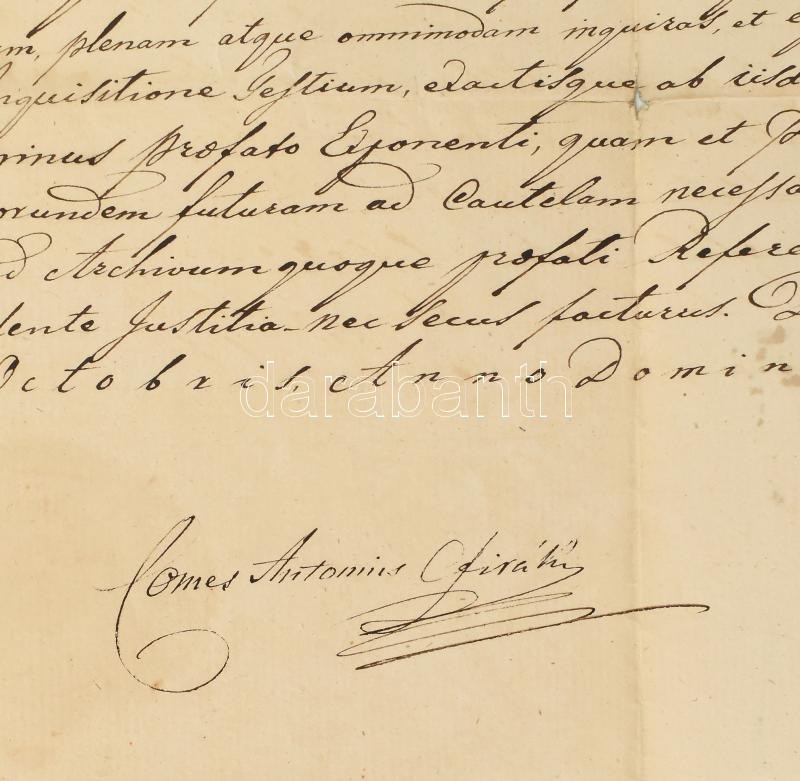 plenam atque omnimodam inquiras, et
Inquisitione Testium, exactisque ab iisd
minus præfato Exponenti, quam et
orundem futuram ad Cautelam necessa
ad Archivum quoque præfati Refere
dente Justitia nec secus facturus.
Octobris, Anno Domin
darabanth
Comes Antonius Cziráky